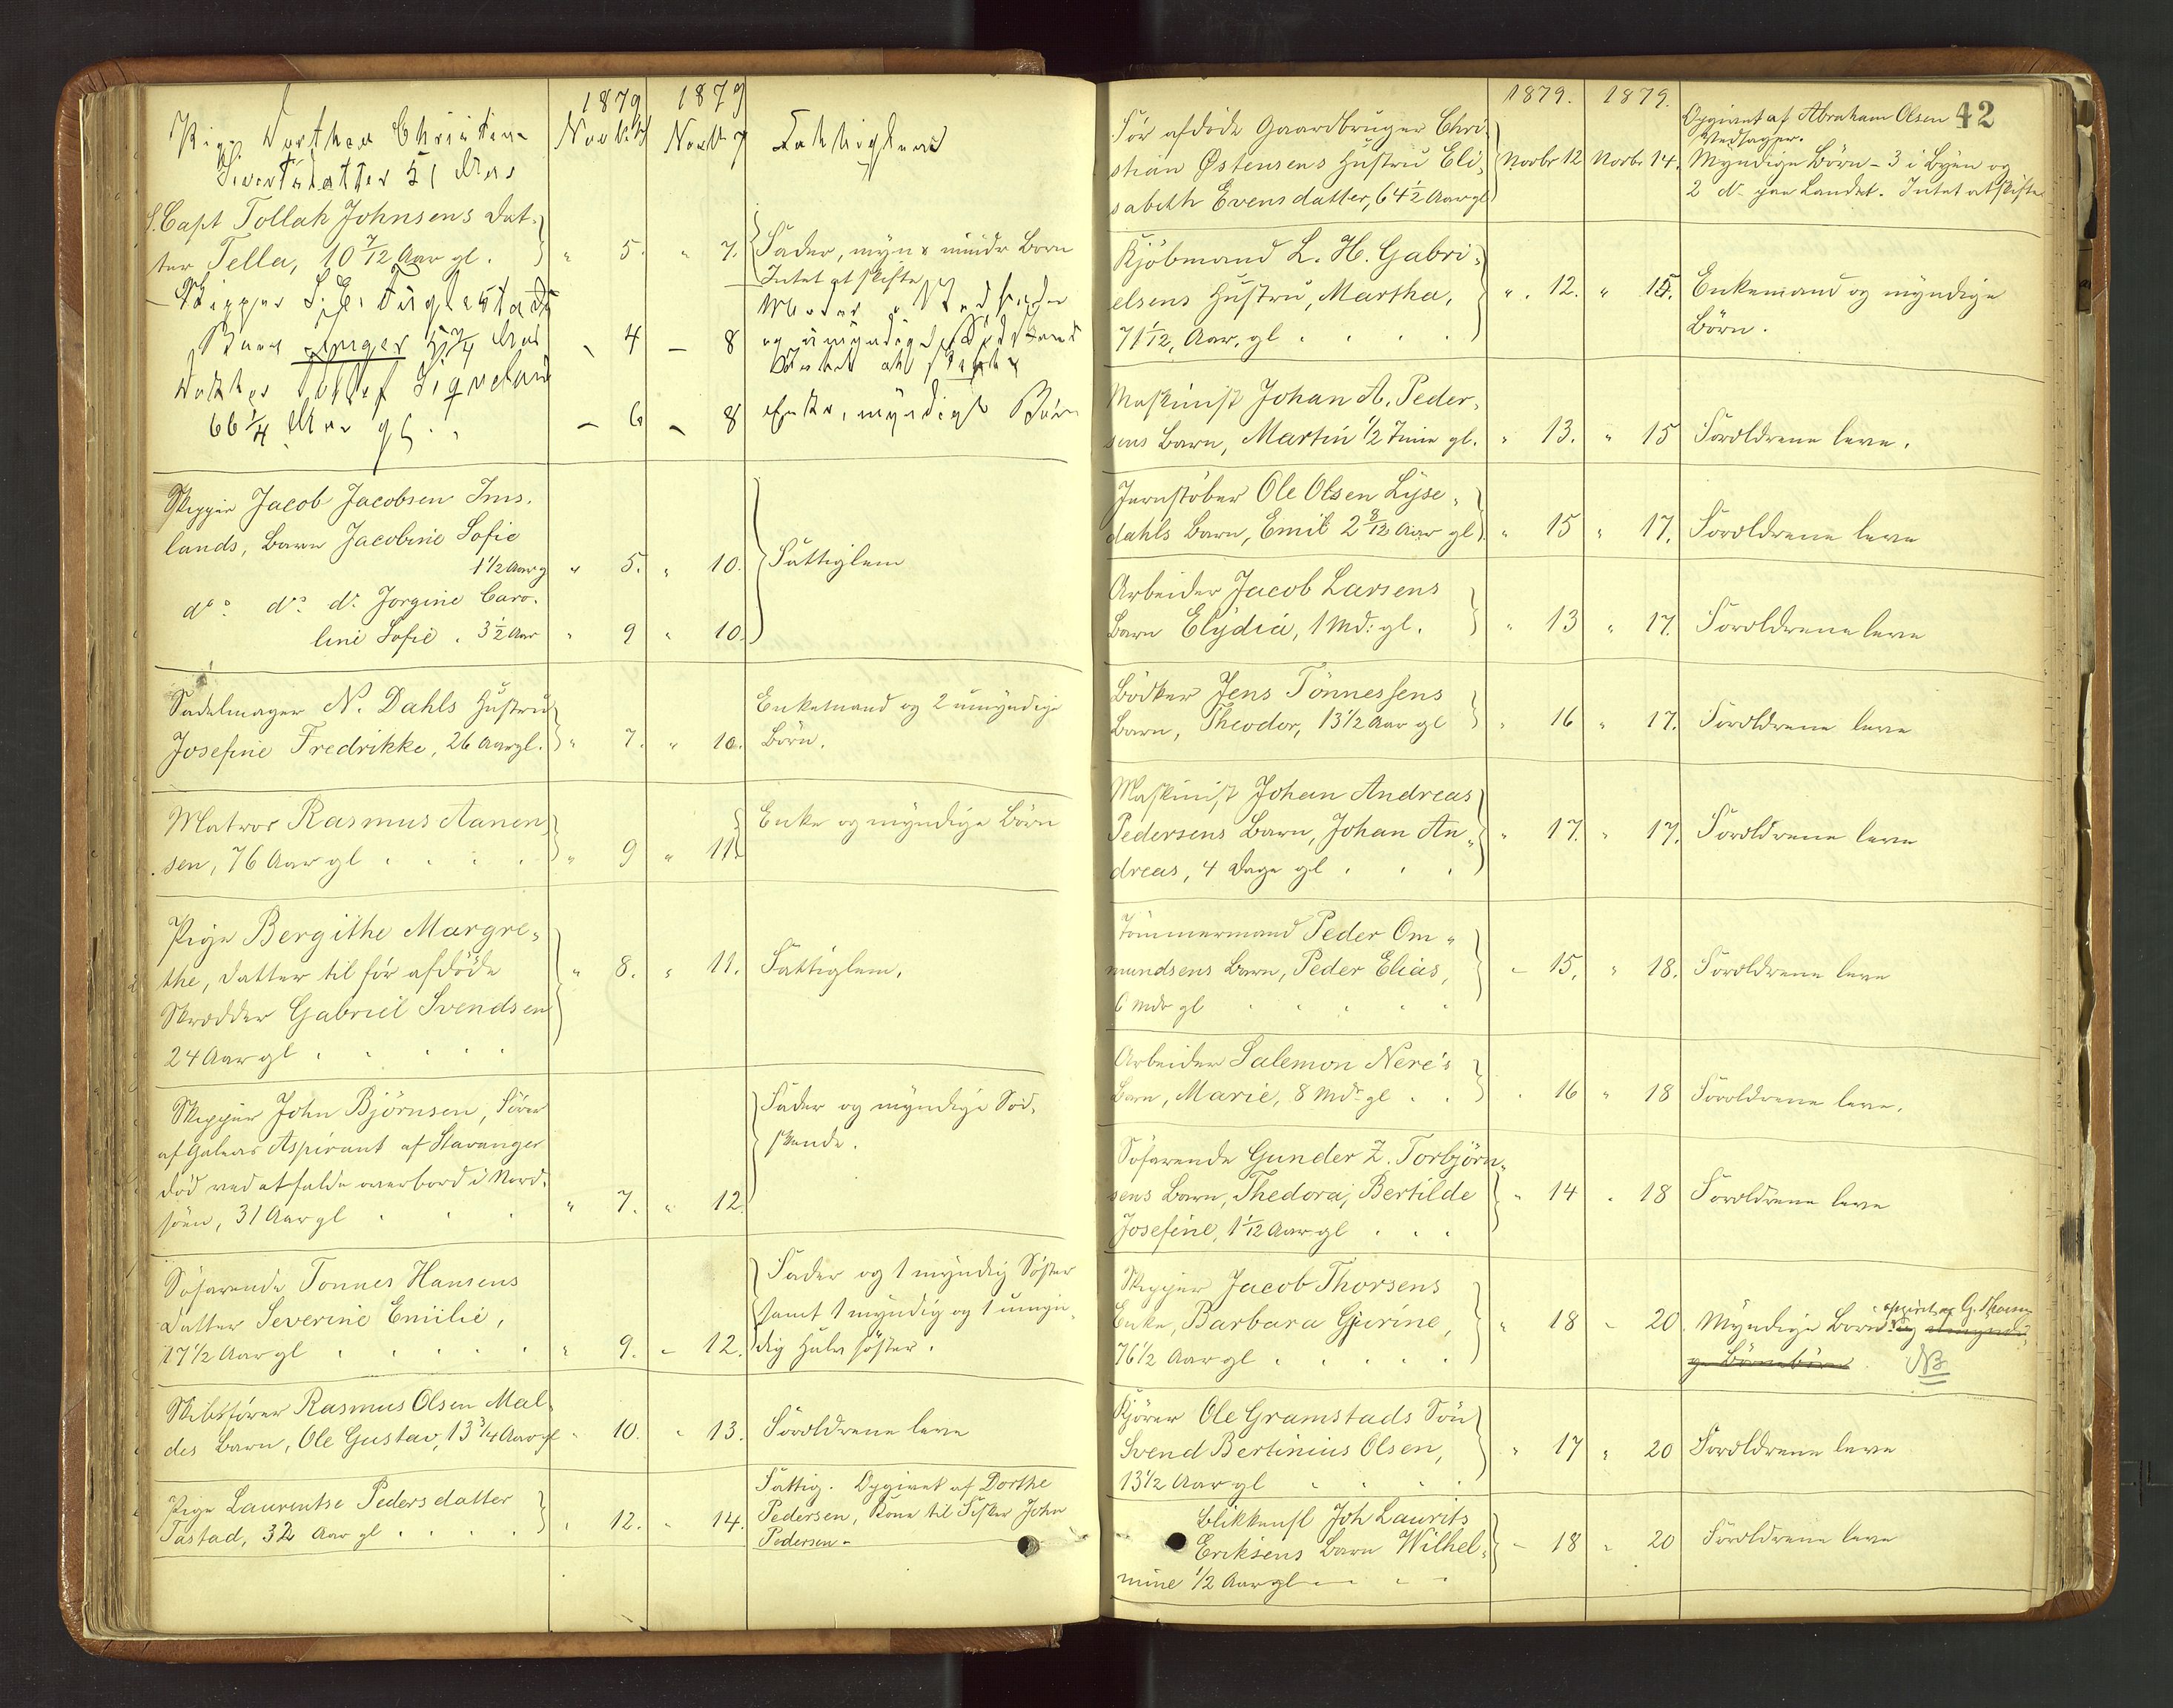 1879 1879
Pige Dorthea Christine Novbr Novbr 7 Fattiglem
Sivertsdatter 51 Aar
S. Capt Tollak Johnsens Dat-
ter Tella, 10 7/12 Aar gl. " 5. " 7. Fader, myn & umndr Børn
Intet at skifte
Skipper
Barn Inger Aar - 4 - 8 og umyndige Sødskende
66 1/4 Aar gl. - 6 - 8 Enke, myndige Børn
Skipper Jacob Jacobsen Ims-
lands, Barn Jacobine Sofie
1 1/2 Aar g " 5. " 10. Fattiglem
do do do Jorgine Caro-
line Sofie. 3 1/2 Aar " 9 " 10.
Sadelmager N. Dahls Hustru Enkemand og 2 umyndige
Josefine Fredrikke, 26 Aar gl. " 7. " 10. Børn.
Matros Rasmus Aanen- Enke og myndige Børn
sen, 76 Aar gl " 9 " 11.
Pige Bergithe Margre-
the, Datter til før afdøde " 8. " 11. Fattiglem.
Skrædder Gabriel Svendsen
24 Aar gl
Skipper John Bjørnsen, Fører Fader og myndige Sød-
af Galeas Aspirant af Stavanger skende.
død ved at falde overbord i Nord-
søen, 31 Aar gl " 7. " 12.
Søfarende Tonnes Hansens Fader og 1 myndig Søster
Datter Severine Emilie, samt 1 myndig og 1 umyn-
17 1/2 Aar gl " 9. " 12. dig Halvsøster.
Skibsfører Rasmus Olsen Mal-
des Barn, Ole Gustav, 13 3/4 Aar gl " 10. " 13. Forældrene leve
Pige Laurentse Pedersdatter Fattig. Opgivet af Dorthe
Tastad, 32 Aar gl " 12. " 14. Pedersen, Kone til Fisker John
Pedersen-
42
1879. 1879.
Før afdøde Gaardbruger Chri- Opgivet af Abraham Olsen
Vedlager.
stian Østensens Hustru Eli- Novbr 12 Novbr 14. Myndige Børn - 3 i Byen og
sabeth Evensdatter, 64 1/2 Aar gl 2 do paa Landet. Intet at skifte
Kjøbmand L. H. Gabri-
elsens Hustru, Martha, " 12. " 15. Enkemand og myndige
71 1/12 Aar. gl Børn.
Maskinist Johan A. Peder-
sens Barn, Martin 1/2 Time gl. " 13. " 15 Forældrene leve.
Jernstøber Ole Olsen Lyse-
dahls Barn, Emil 2 8/12 Aar gl " 15 " 17. Forældrene leve
Arbeider Jacob Larsens
Barn Elydia, 1 Md: gl. " 13 " 17. Forældrene leve
Bødker Jens Tønnessens
Barn, Theodor, 13 1/2 Aar gl " 16 " 17. Forældrene leve
Maskinist Johan Andreas
Pedersens Barn, Johan An- " 17. " 17. Forældrene leve
dreas, 4 Dage gl
Tømmermand Peder Om-
mundsens Barn, Peder Elias, - 15. " 18. Forældrene leve
6 Mdr gl
Arbeider Salemon Nere's
Barn, Marie, 8 Mdr gl " 16 " 18 Forældrene leve.
Søfarende Gunder Z. Torbjørn-
sens Barn, Thedora, Bertilde " 14 " 18 Forældrene leve
Josefine, 1 1/12 Aar gl
Skipper Jacob Thorsens
Enke, Barbara Gurine, " 18 - 20. Myndige Børn opgivet af G. Thorsen og umyndi-
76 1/2 Aar gl ge Børnebørn NB
Kjører Ole Gramstads Søn
Svend Bertinius Olsen, " 17 " 20 Forældrene leve
13 1/2 Aar gl
Blikkensl Joh Laurits
Eriksens Barn Wilhel- - 18 " 20 Forældrene leve
mine 1/2 Aar gl